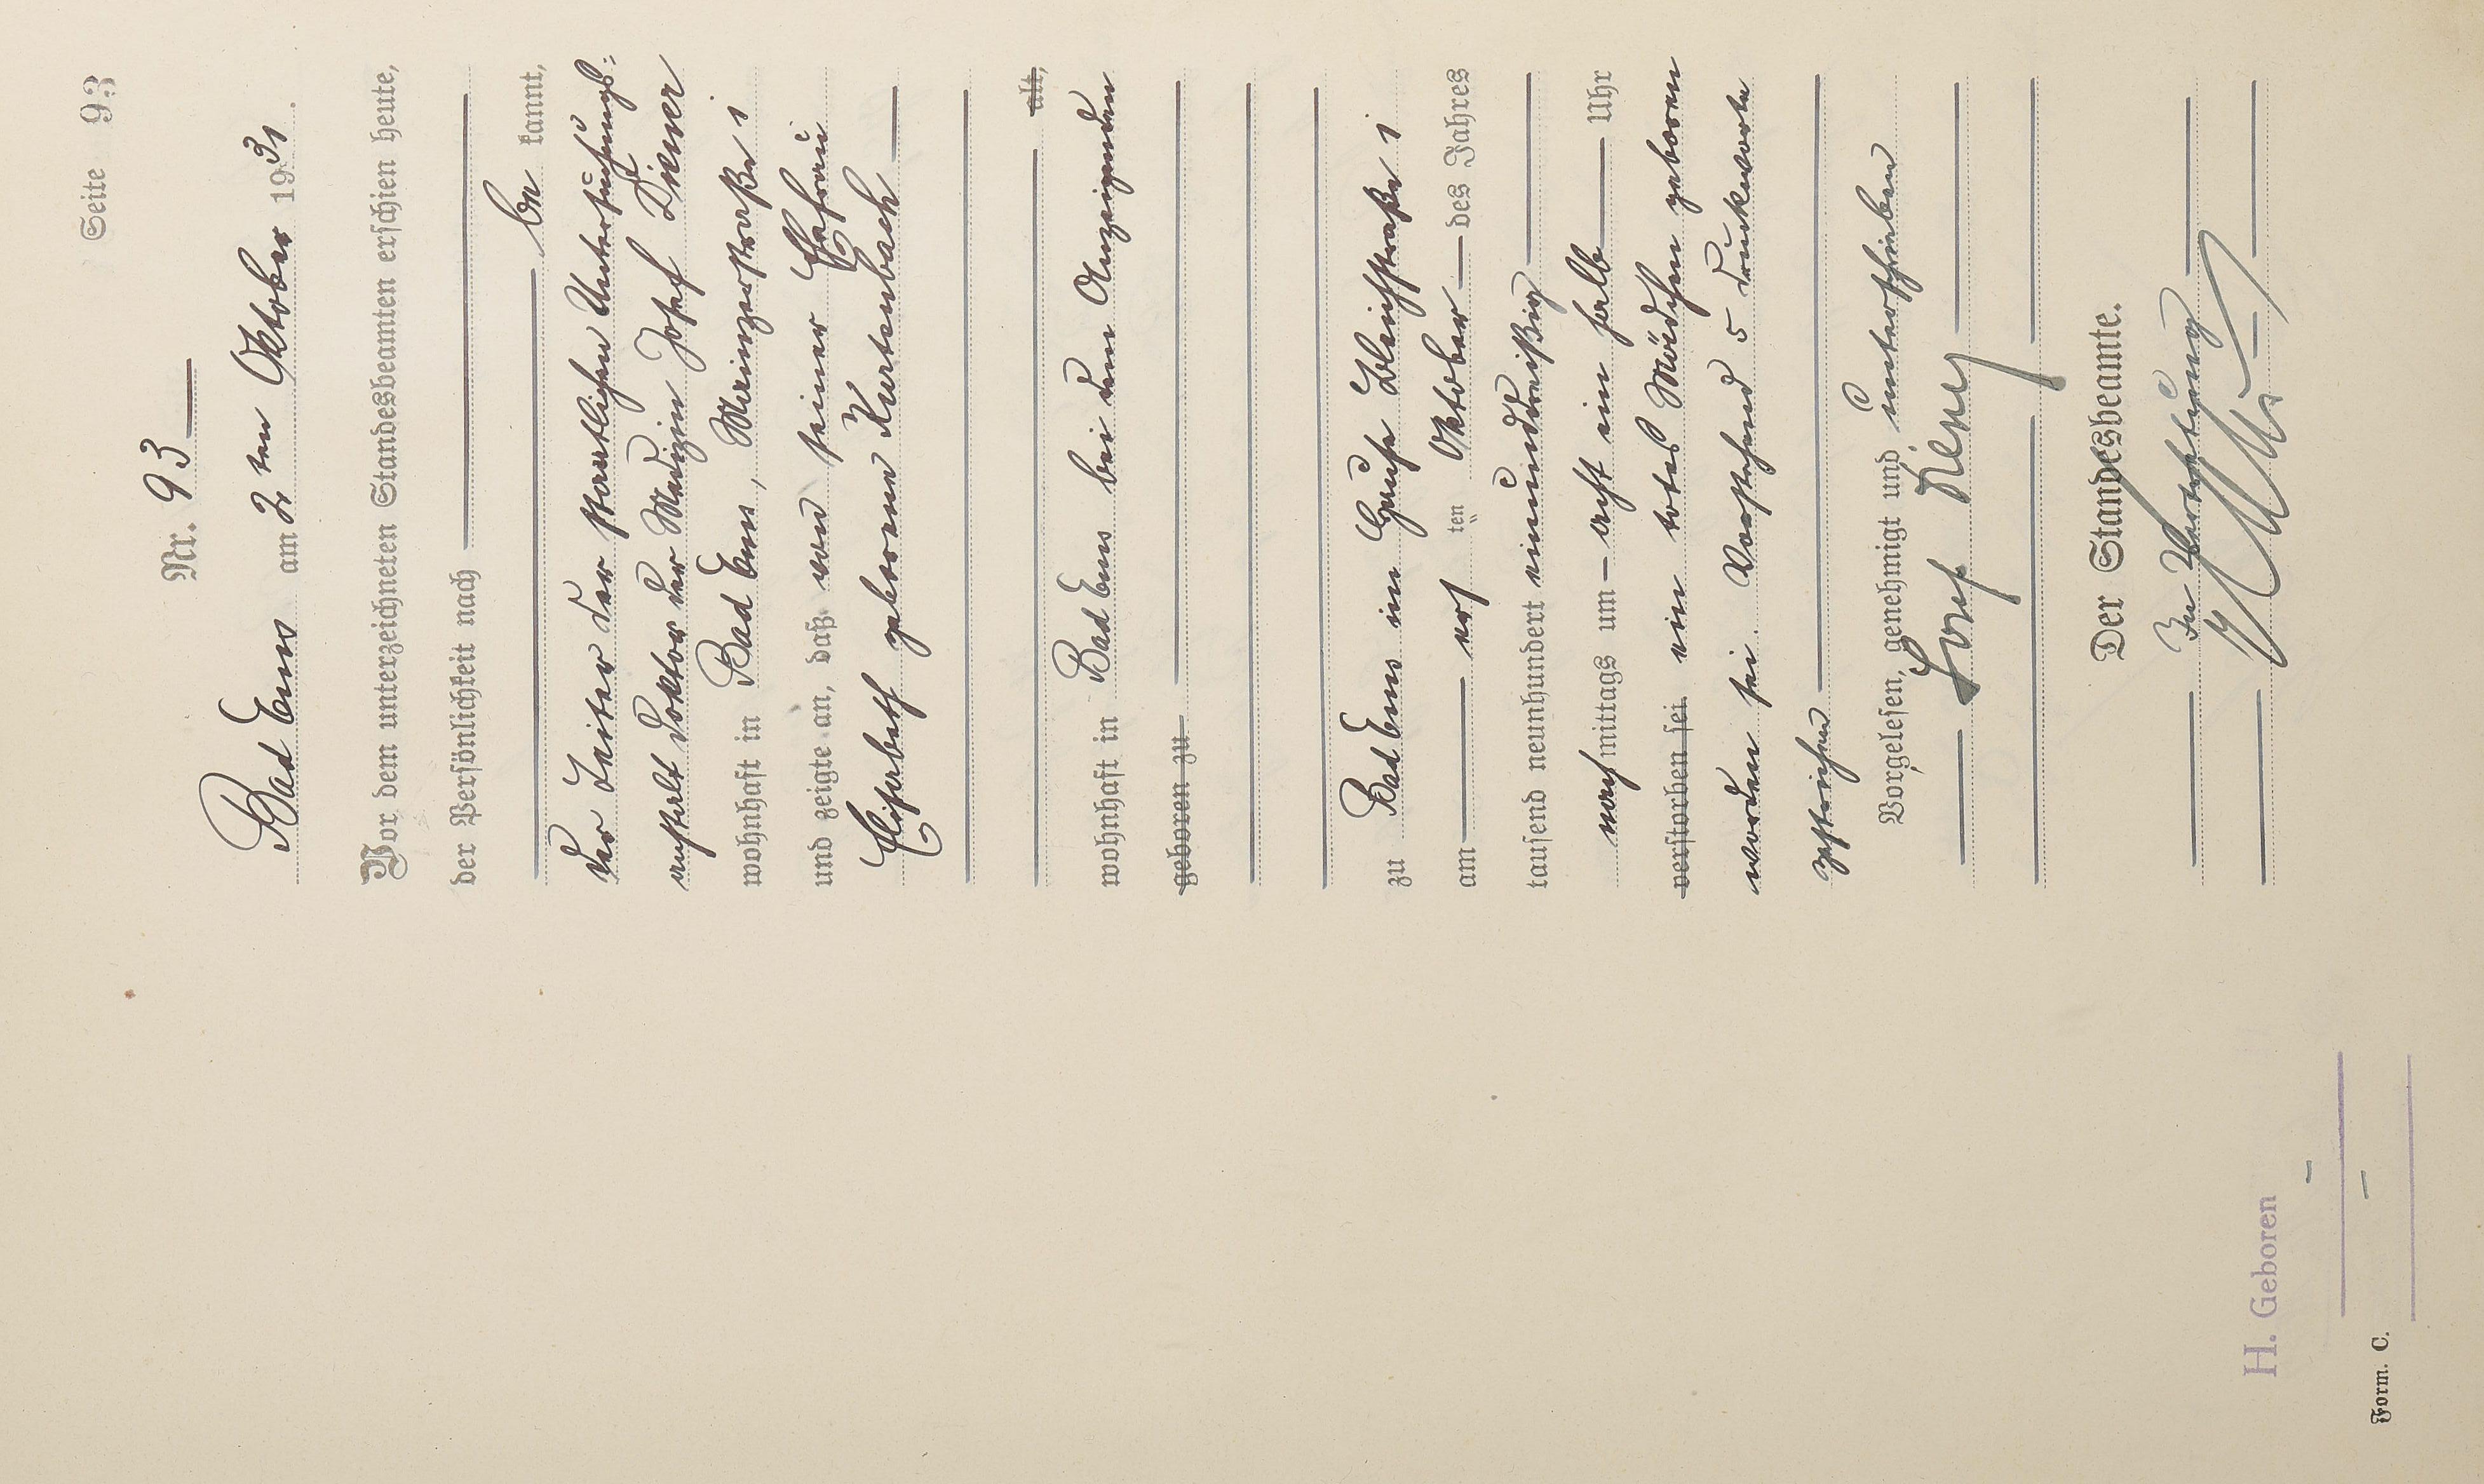 Seite 93
Nr. 93
Bad Ems am 2ten Oktober 1931.
Vor dem unterzeichneten Standesbeamten erschien heute,
der Persönlichkeit nach
be kannt,
der Leiter der staatlichen Untersuchungs=
anstalt Doktor der Medizin Josef Diener
wohnhaft in Bad Ems, Mainzerstraße 1
und zeigte an, daß von seiner Ehefrau
Elisabeth geborene Kurtenbach
alt,
wohnhaft in Bad Ems bei dem Anzeigenden
geboren zu
zu Bad Ems im Hause Bleichstraße 1
am ersten Oktober des Jahres
tausend neunhundert einunddreißig
nachmittags um acht ein halb Uhr
verstorben sei ein totes Mädchen geboren
worden sei. Vorstehend 5 Druckworte
gestrichen
Vorgelesen, genehmigt und unterschrieben
Josef
Der Standesbeamte.
In Vertretung
H. Geboren
Form. C.